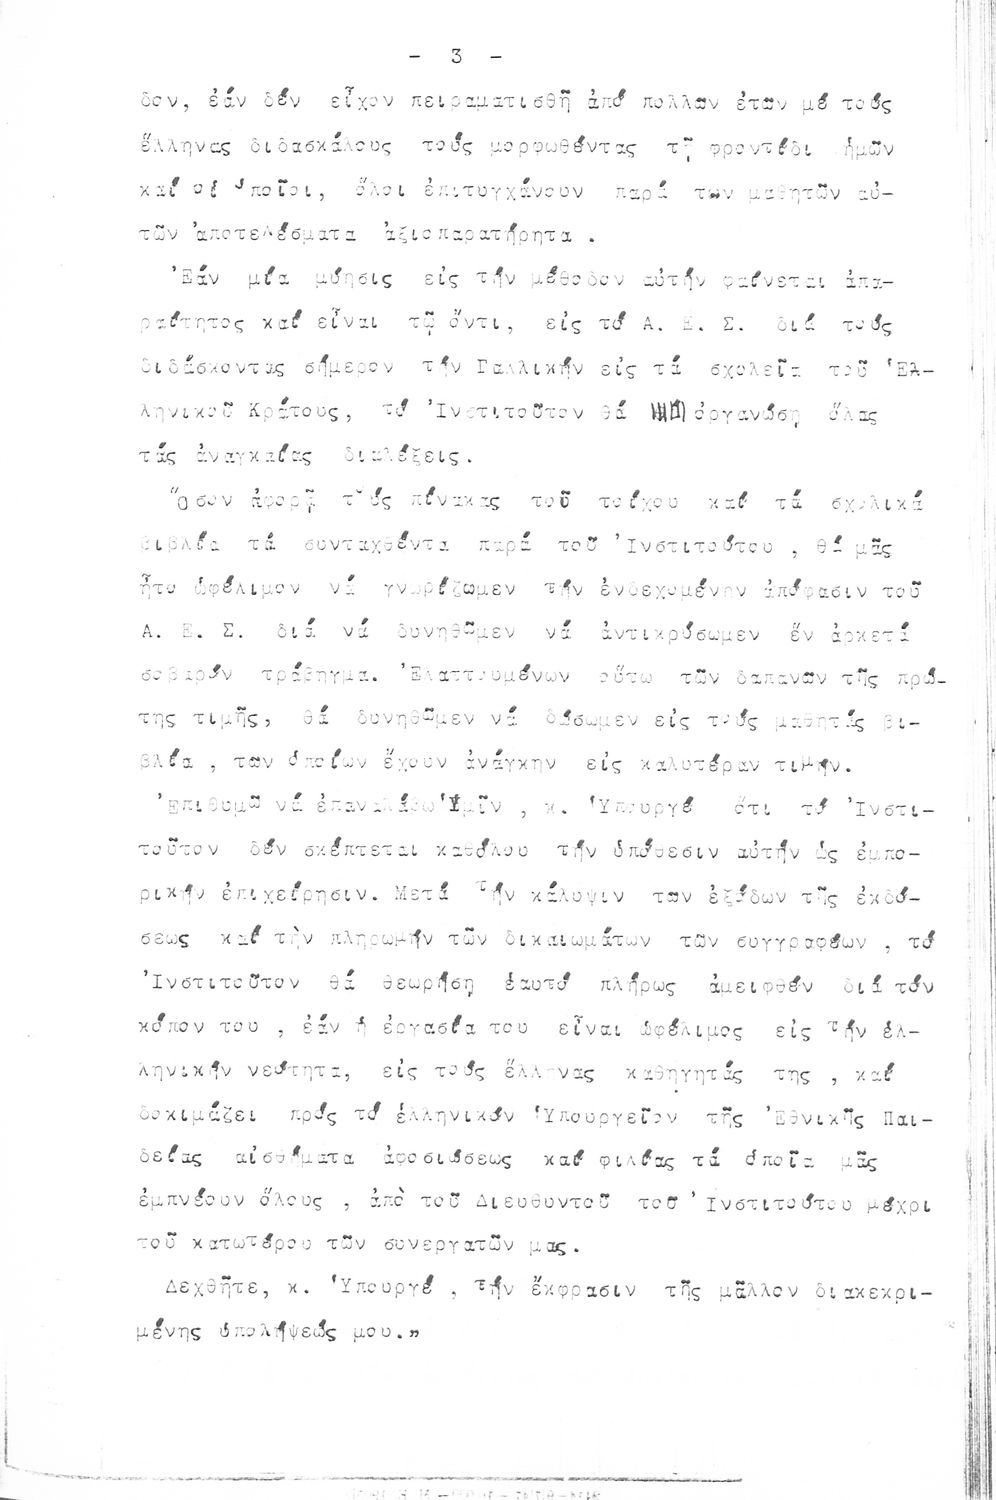 - 3 -
δον, ἐάν δέν εἶχον πειραματισθῆ ἀπό πολλῶν ἐτῶν μέ τούς
ἕλληνας διδασκάλους τούς μορφωθέντας τῇ φροντίδι ἡμῶν
καί οἱ ὁποῖοι, ὅλοι ἐπιτυγχάνουν παρά τῶν μαθητῶν αὐ-
τῶν ἀποτελέσματα ἀξιοπαρατήρητα .
Ἐάν μία μύησις εἰς τήν μέθοδον αὐτήν φαίνεται ἀπα-
ραίτητος καί εἶναι τῷ ὄντι, εἰς τό Α. Ε. Σ. διά τούς
διδάσκοντας σήμερον τήν Γαλλικήν εἰς τά σχολεῖα τοῦ Ἑλ-
ληνικοῦ Κράτους, τό Ἰνστιτοῦτον θά ὀργανώσῃ ὅλας
τάς ἀναγκαίας διαλέξεις.
Ὅσον ἀφορᾷ τούς πίνακας τοῦ τοίχου καί τά σχολικά
βιβλία τά συνταχθέντα παρά τοῦ Ἰνστιτούτου , θά μᾶς
ἦτο ὠφέλιμον νά γνωρίζωμεν τήν ἐνδεχομένην ἀπόφασιν τοῦ
Α. Ε. Σ. διά νά δυνηθῶμεν νά ἀντικρύσωμεν ἕν ἀρκετά
σοβαρόν τράβηγμα. Ἐλαττουμένων οὕτω τῶν δαπανῶν τῆς πρώ-
της τιμῆς, θά δυνηθῶμεν νά δώσωμεν εἰς τούς μαθητάς βι-
βλία , τῶν ὁποίων ἔχουν ἀνάγκην εἰς καλυτέραν τιμήν.
Ἐπιθυμῶ νά ἐπαναλάβω Ὑμῖν , κ. Ὑπουργέ ὅτι τό Ἰνστι-
τοῦτον δέν σκέπτεται καθόλου τήν ὑπόθεσιν αὐτήν ὡς ἐμπο-
ρικήν ἐπιχείρησιν. Μετά τήν κάλυψιν τῶν ἐξόδων τῆς ἐκδό-
σεως καί τὴν πληρωμήν τῶν δικαιωμάτων τῶν συγγραφέων , τό
Ἰνστιτοῦτον θά θεωρήσῃ ἑαυτό πλήρως ἀμειφθέν διά τόν
κόπον του , ἐάν ἡ ἐργασία του εἶναι ὠφέλιμος εἰς τήν ἑλ-
ληνικήν νεότητα, εἰς τούς ἕλληνας καθηγητάς της , καί
δοκιμάζει πρός τό ἑλληνικόν Ὑπουργεῖον τῆς Ἐθνικῆς Παι-
δείας αἰσθήματα ἀφοσιώσεως καί φιλίας τά ὁποῖα μᾶς
ἐμπνέουν ὅλους , ἀπὸ τοῦ Διευθυντοῦ τοῦ Ἰνστιτούτου μέχρι
τοῦ κατωτέρου τῶν συνεργατῶν μας.
Δεχθῆτε, κ. Ὑπουργέ , τήν ἔκφρασιν τῆς μᾶλλον διακεκρι-
μένης ὑπολήψεώς μου.»